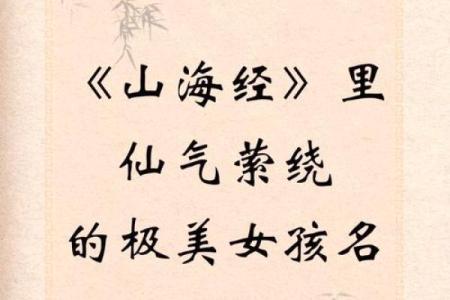 《山海经》里
仙气萦绕
的极美女孩名